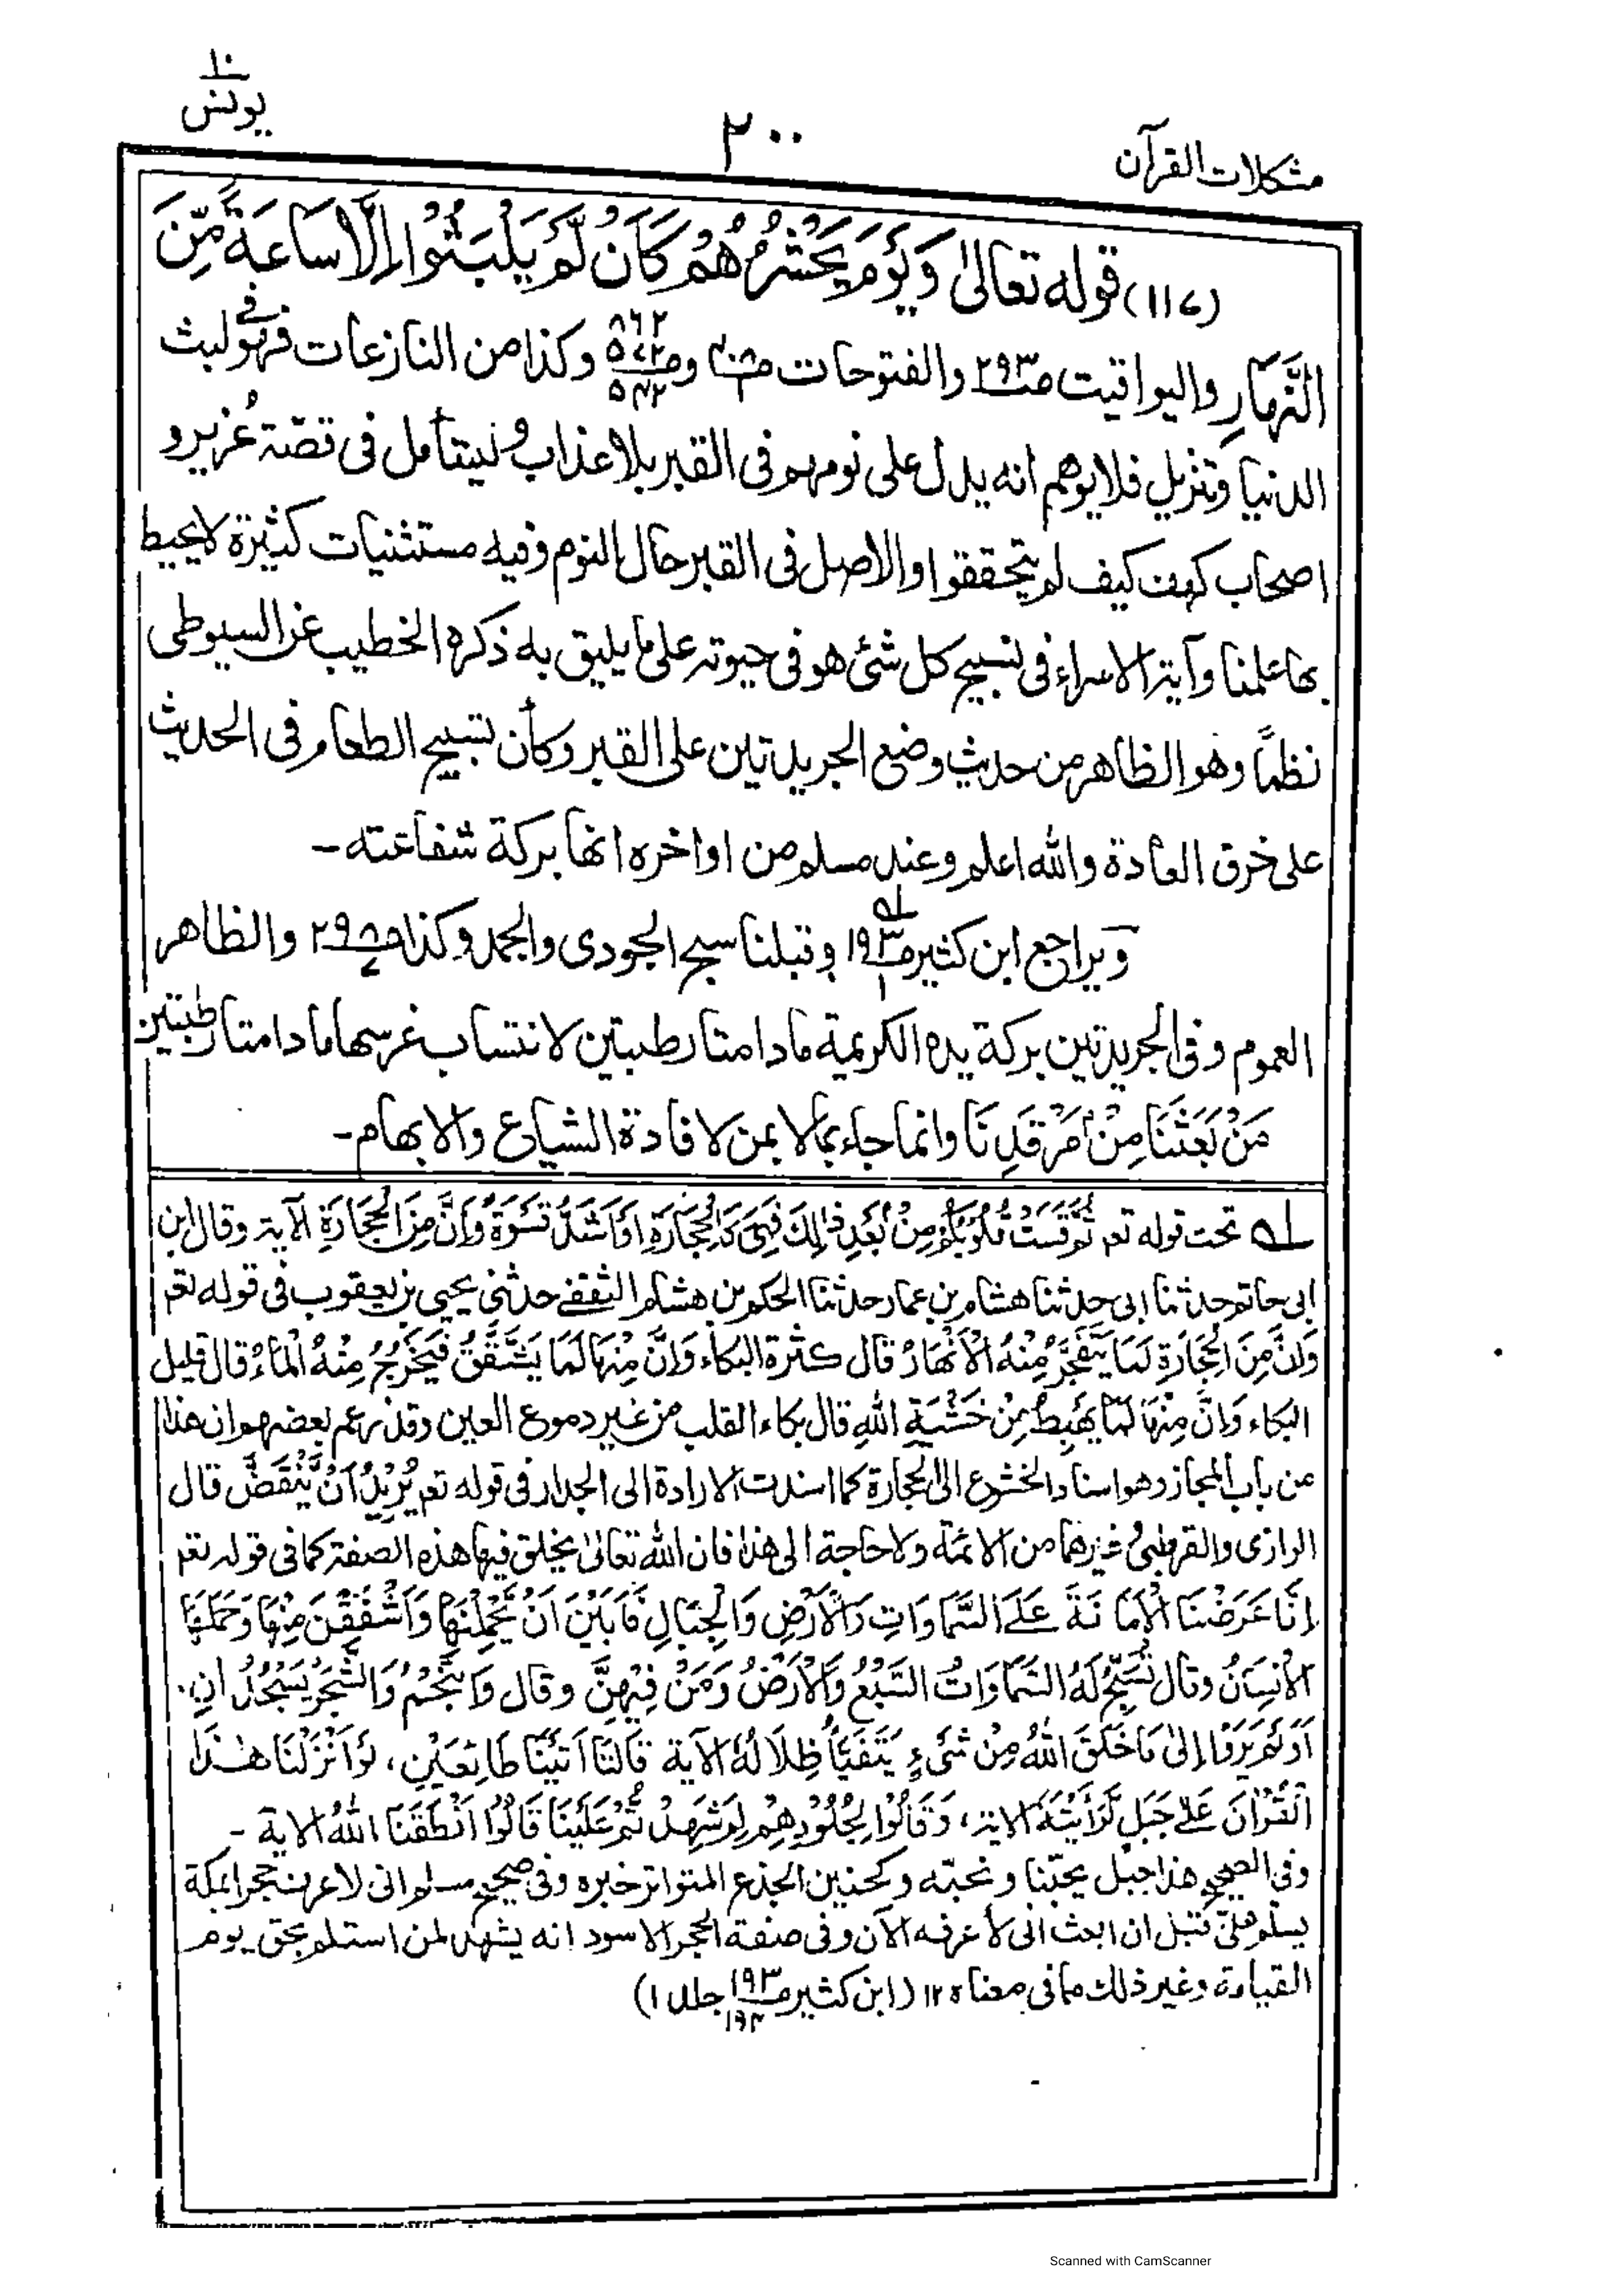 ١٠
يونس
٢٠٠
مشكلات القرآن
(١١٧) قوله تعالىٰ وَيَوْمَ يَحْشُرُهُمْ كَأَنْ لَّمْ يَلْبَثُوْا اِلَّا سَاعَةً مِّنَ
النَّهَارِ واليواقيت ص٢٩٣ والفتوحات وكذا من النازعات فهو في لبث
الدنيا وتنزيل فلا يوهم انه يدل على نومهم فى القبر بلا عذاب وليتأمل فى قصّة عُزير و
اصحاب كهف كيف لم يتحققوا والاصل فى القبر حال النوم وفيه مستثنيات كثيرة لا يحيط
بها علمنا وآية الاسراء فى تسبيح كل شئ هو فى حيوته على ما يليق به ذكره الخطيب عن السيوطى
نظمًا وهو الظاهر من حديث وضع الجريدتين على القبر وكأن تسبيح الطعام فى الحديث
على خرق العادة والله اعلم وعند مسلم من اواخره انها بركة شفاعته -
ويراجع ابن كثير ص١٩٣ ١ وقبلنا سبح الجودى والجمد وكذا ص٢٩٨ والظاهر
العموم وفى الجريدتين بركة يده الكريمة ما دامتا رطبتين لانتساب غرسهما ما دامتا رطبتين
مَنْ بَعَثَنَا مِنْ مَرْقَدِنَا وانما جاء بما لا بمن لافادة الشياع والابهام -
لـه تحت قوله تعم ثُمَّ قَسَتْ قُلُوْبُكُمْ مِنْ بَعْدِ ذٰلِكَ فَهِيَ كَالْحِجَارَةِ اَوْ اَشَدُّ قَسْوَةً وَاِنَّ مِنَ الْحِجَارَةِ الآية وقال ابن
ابى حاتم حدثنا ابى حدثنا هشام بن عمار حدثنا الحكم بن هشام الثقفى حدثنى يحيى بن يعقوب فى قوله تعم
وَاِنَّ مِنَ الْحِجَارَةِ لَمَا يَتَفَجَّرُ مِنْهُ الْاَنْهَارُ قال كثرة البكاء وَاِنَّ مِنْهَا لَمَا يَشَّقَّقُ فَيَخْرُجُ مِنْهُ الْمَاءُ قال قليل
البكاء وَاِنَّ مِنْهَا لَمَا يَهْبِطُ مِنْ خَشْيَةِ اللهِ قال بكاء القلب من غير دموع العين وقد زعم بعضهم ان هذا
من باب المجاز وهو اسناد الخشوع الى الحجارة كما اسندت الارادة الى الجدار فى قوله تعم يُرِيْدُ اَنْ يَّنْقَضَّ قال
الرازى والقرطبى وغيرهما من الائمة ولا حاجة الى هذا فان الله تعالىٰ يخلق فيها هذه الصفة كما فى قوله تعم
اِنَّا عَرَضْنَا الْاَمَانَةَ عَلَى السَّمَاوَاتِ وَالْاَرْضِ وَالْجِبَالِ فَاَبَيْنَ اَنْ يَّحْمِلْنَهَا وَاَشْفَقْنَ مِنْهَا وَحَمَلَهَا
الْاِنْسَانُ وقال تُسَبِّحُ لَهُ السَّمَاوَاتُ السَّبْعُ وَالْاَرْضُ وَمَنْ فِيْهِنَّ وقال وَالنَّجْمُ وَالشَّجَرُ يَسْجُدَانِ.
اَوَلَمْ يَرَوْا اِلىٰ مَا خَلَقَ اللهُ مِنْ شَيْءٍ يَتَفَيَّأُ ظِلَالُهُ الآية قَالَتَا اَتَيْنَا طَائِعَيْنِ، لَوْ اَنْزَلْنَا هٰذَا
الْقُرْاٰنَ عَلٰى جَبَلٍ لَّرَاَيْتَهُ الاية، وَقَالُوْا لِجُلُوْدِهِمْ لِمَ شَهِدْتُمْ عَلَيْنَا قَالُوْا اَنْطَقَنَا اللهُ الاية -
وفى الصحيح هذا جبل يحبّنا ونحبّه وكحنين الجذع المتواتر خبره وفى صحيح مسلم انى لاعرف حجرا بمكة
يسلم علىّ قبل ان ابعث انى لأعرفه الآن وفى صفة الحجر الاسود انه يشهد لمن استلم بحق يوم
القيامة وغير ذلك مما فى معناه ١٢ (ابن كثير ص١٩٣ ١٩٤ جلد ١)
Scanned with CamScanner